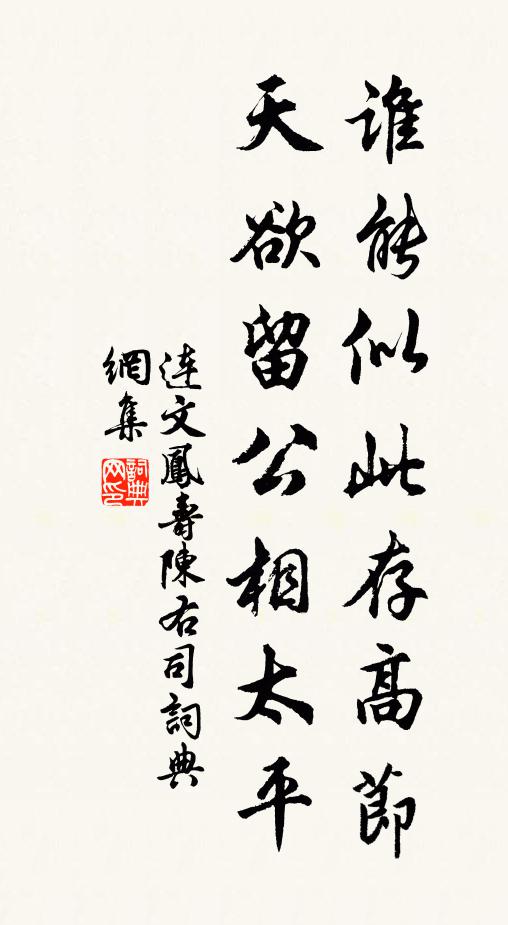 誰能似此存高節
天欲留公相太平
連文鳳壽陳右司詞典
網集
詞典
网印